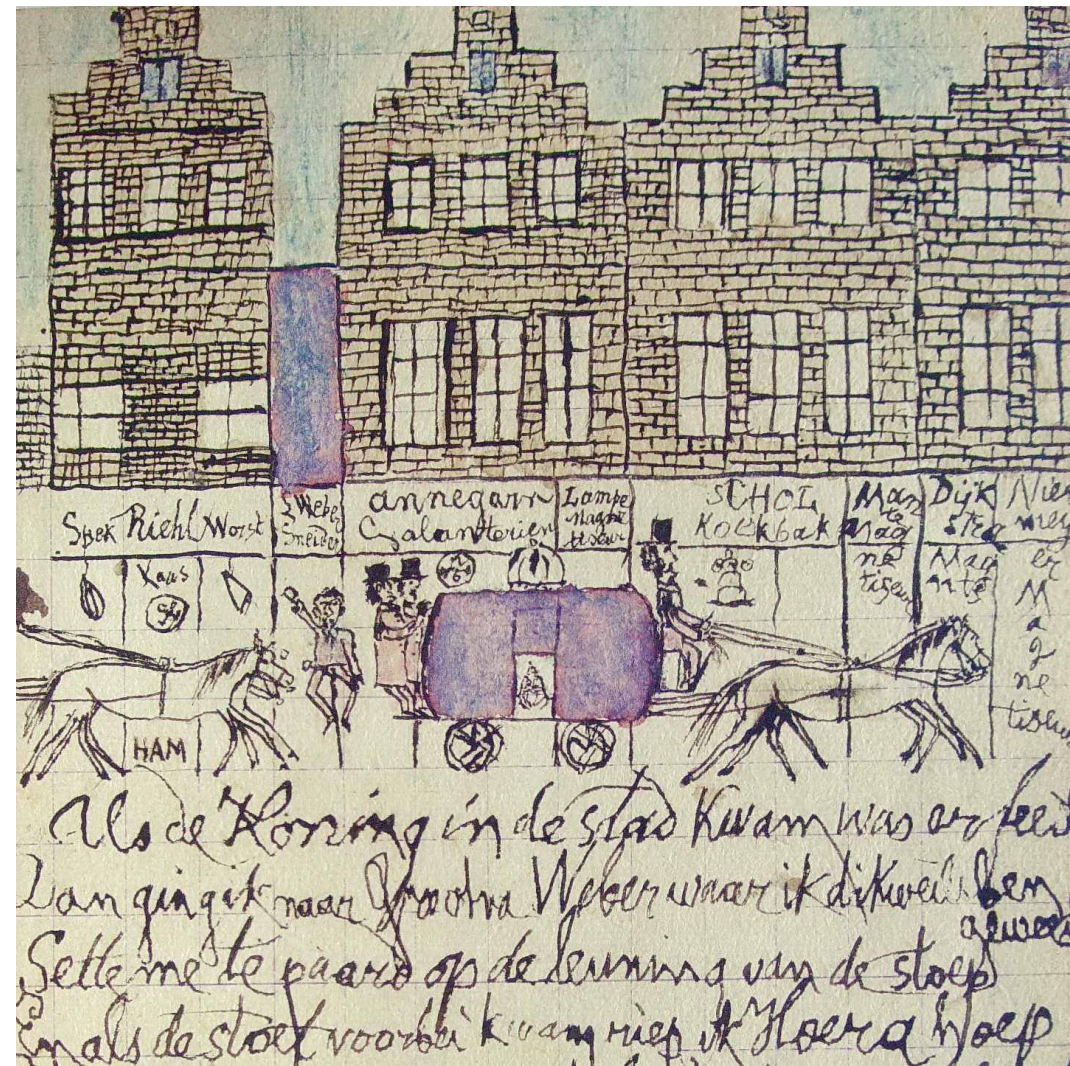 Spek Riehl Worst
Weber
Sneider
annegarn
Galanterien
Lampe
Magne
tiseur
SCHOL
KoekBak
Man
te
Mag
ne
tiseur
Dijk
stra
Mag
Nie
mey
er
M
a
g
ne
tiseur
Kaas
HAM
Als de Koning in de stad Kwam was er feest
Dan ging ik naar Grootva Weber waar ik dikwels ben
geweest
Sette me te paard op de leuning van de stoep
En als de stoet voorbei kwam riep ik Hoera hoep